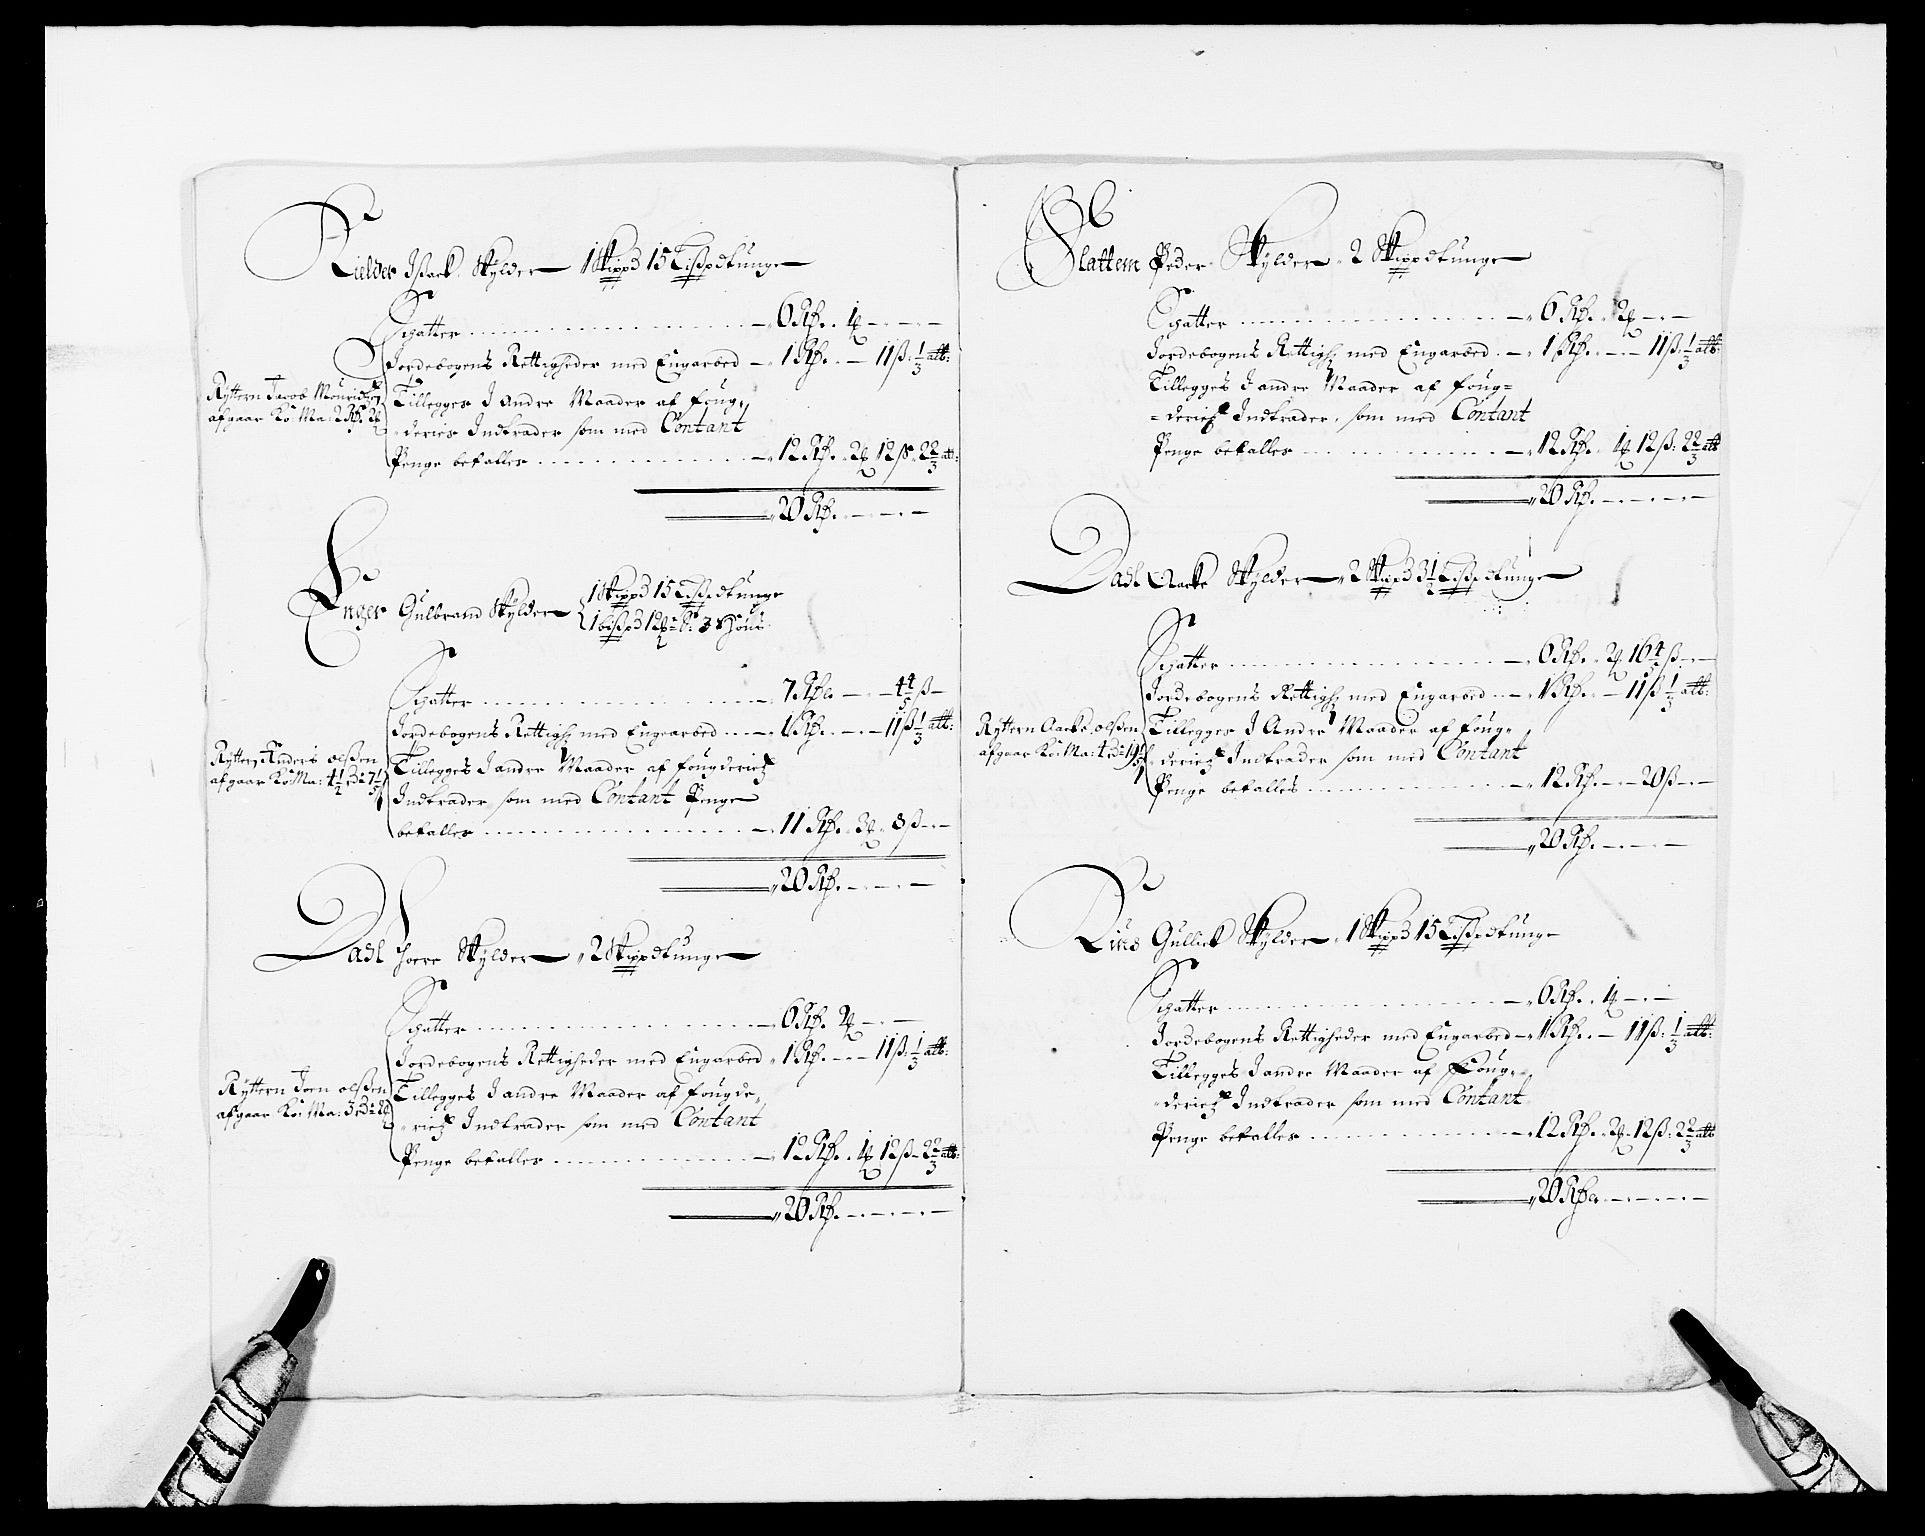 Kielder Isack Skÿlder 1 Skippd 15 Lißpdtunge
Schatter 6 Rd. 1
Jordebogens Rettigheder med Engarbed 1 Rd. 11 ß: 1/3 alb:
Rÿttern Jacob
afgaar Ko: Ma: 2 Rd.
Tillegges I Andre Maader af foug,,
deries Indtrader som med Contant
Penge betalles 12 Rd. 2 12 ß. 2 2/3 alb:
20 Rd.
Enger Gulbrand Skÿlder 1 Skippd 15 Lißpdtunge
Schatter 7 Rd. 4 4/5 ß
Jordebogens Rettigh: med Engearbed 1 Rd. 11 ß 1/3 alb:
Rÿttern Anders olßen
afgaar Ko: Ma: 4 1/2
Tillegges I andre Maader af fougderies
Indtrader som med Contant Penge
betalles 11 Rd. 3 8 ß
20 Rd.
Dadl Thore Skÿlder 2 Skippdtunge
Schatter 6 Rd. 2
Jordebogens Rettigheder med Engarbed 1 Rd. 11 ß: 1/3 alb:
Rÿttern Joen olßen
afgaar Ko: Ma: 3
Tillegges I andre Maader af fougde,,
ries Indtrader som med Contant
Penge betalles 12 Rd. 1 12 ß 2 2/3 alb:
20 Rd.
Slattem Peder Skÿlder 2 Skippdtunge
Schatter 6 Rd. 2
Jordebogens Rettigh: med Engarbed 1 Rd. 11 ß: 1/3 alb:
Tillegges I andre Maader af foug=
=deries Indtrader, som med Contant
Penge betalles 12 Rd. 1 12 ß: 2 2/3 alb
20 Rd.
Dadl Aacke Skÿlder 2 Skippd 3 1/2 Lißpdtunge
Schatter 6 Rd. 2 16 4/5 ß
Jordebogens Rettigh: med Engarbed 1 Rd. 11 ß 1/3 alb:
Rÿttern Aacke olßen
afgaar Ko: Ma: 4
Tillegges I Andre Maader af foug,,
deries Indtrader som med Contant
Penge betalles 12 Rd. 20 ß
20 Rd.
Riis Gullick Skÿlder 1 Skippd 15 Lißpdtunge
Schatter 6 Rd. 1
Jordebogens Rettigheder med Engarbed 1 Rd. 11 ß: 1/3 alb:
Tillegges I andre Maader af Foug,,
deries Indtrader som med Contant
Penge betalles 12 Rd. 2 12 ß: 2 2/3 alb
20 Rd.